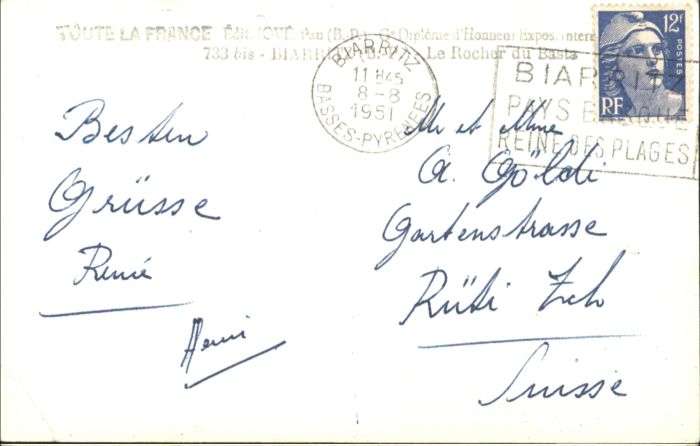 TOUTE LA FRANCE Pau (B.-P.) Diplôme d'Honneur
733 bis - BIARRITZ Le Rocher du Basta
12F
POSTES
RF
BIARRITZ
11 H45
8-8
1951
BASSES-PYRENEES
BIARRITZ
PAYS BASQUE
REINE DES PLAGES
Besten
Grüsse
René
Henri
Mr et Mme
A. Göldi
Gartenstrasse
Rüti Zch
Suisse